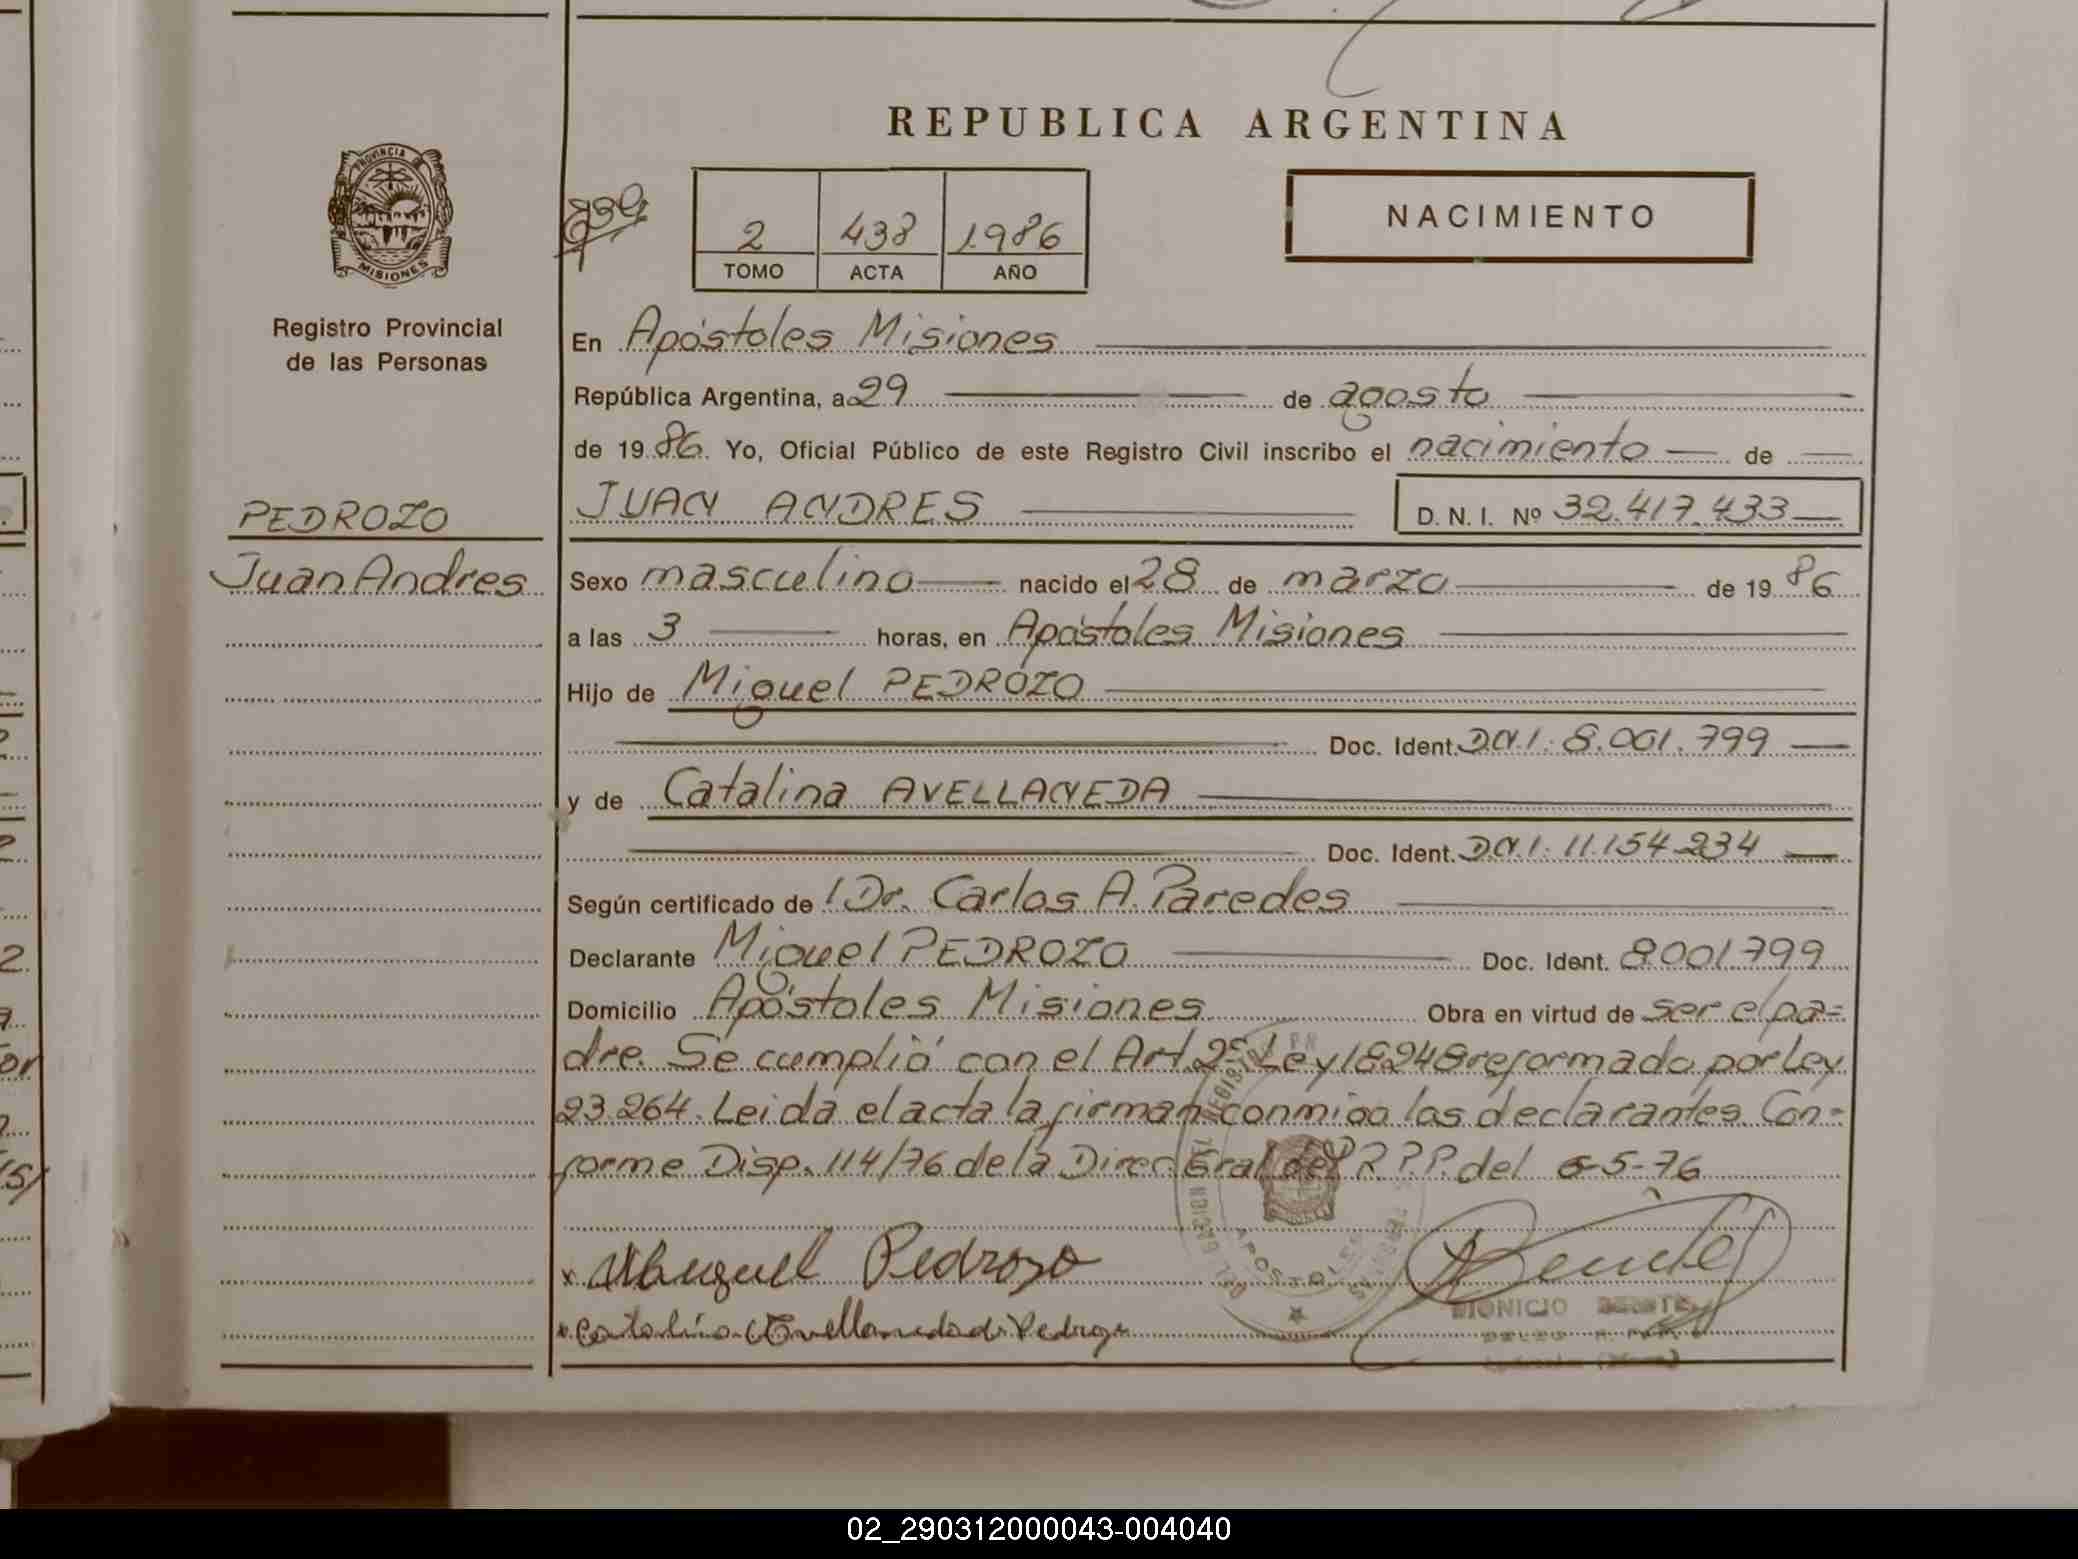 REPUBLICA ARGENTINA
PROVINCIA
MISIONES
Registro Provincial
de las Personas
2 438 1986
TOMO ACTA AÑO
NACIMIENTO
En Apóstoles Misiones
República Argentina, a 29 de agosto
de 19 86. Yo, Oficial Público de este Registro Civil inscribo el nacimiento de
PEDROZO
Juan Andres
JUAN ANDRES D. N. I. Nº 32.417.433
Sexo masculino nacido el 28 de marzo de 19 86
a las 3 horas, en Apóstoles Misiones
Hijo de Miguel PEDROZO
Doc. Ident. D.N.I. 8.001.799
y de Catalina AVELLANEDA
Doc. Ident. D.N.I. 11.154.234
Según certificado de / Dr. Carlos A. Paredes
Declarante Miguel PEDROZO Doc. Ident. 8001799
Domicilio Apóstoles Misiones Obra en virtud de ser el pa=
dre. Se cumplió con el Art. 2º Ley 18248 reformado por Ley
23.264. Leida el acta la firman conmigo los declarantes. Con=
forme Disp. 114/76 de la Direc. Gral del R.P.P. del 6-5-76
x Miguel Pedrozo
x Catalina Avellaneda de Pedrozo
Benitez
DIONICIO BENITEZ
APOSTOLES
02_290312000043-004040